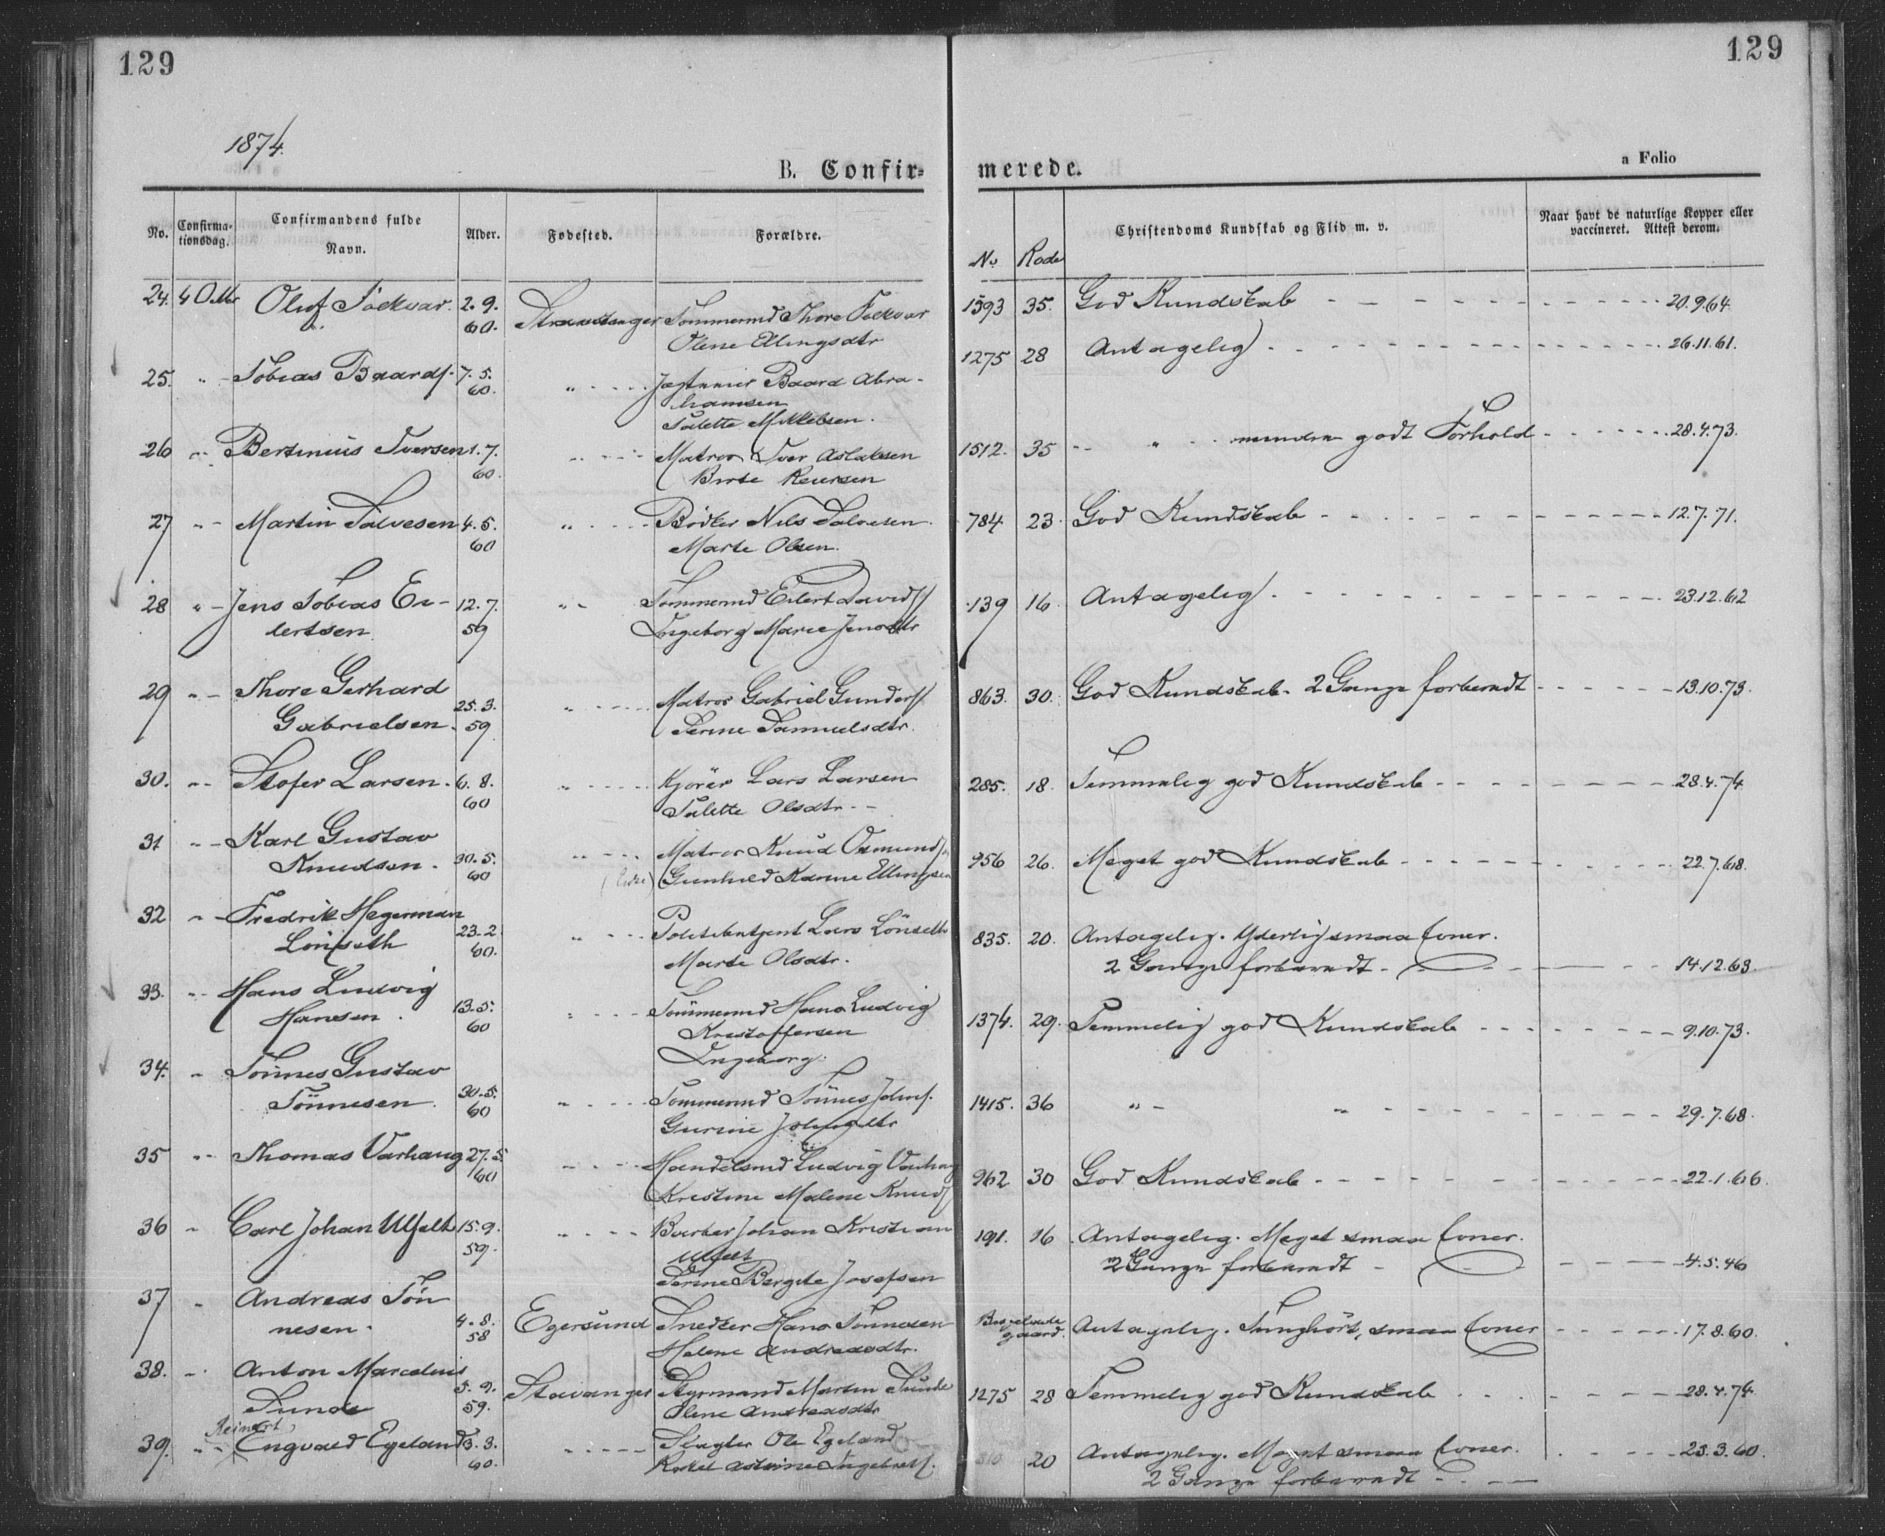 129
129
1874.
B. Confir-
merede.
a Folio
No.
Confirma-
tionsdag.
Confirmandens fulde
Navn.
Alder.
Fødested.
Forældre.
No
Rode
Christendoms Kundskab og Flid m. v.
Naar havt de naturlige Kopper eller
vaccineret. Attest derom.
24. 4 Oktbr Oluf 2.9. Stavanger Tømmermd Thore 1593 35. God Kundskab - - - 20.9.64.
60. Olene Ellingsdtr
25. " - Tobias Baards. 7.5. " - - - Baard Abra- 1275 28 Antagelig - - - 26.11.61.
60. hamsen
Salette Mikkelsen.
26 " - Bertinius Iversen 1.7. " - - - Matros Iver Aslaksen 1512. 35 - - " - mindre godt Forhold - - - 28.4.73.
60. Birte
27 " - Martin Salvesen 4.5. " - - - Bødker Nils Salvesen. 784 23 God Kundskab - - - 12.7.71.
60 Marte Olsen.
28 " - Jens Tobias Ei- 12.7. " - - Tømmermd Eilert Davids 139 16 Antagelig - - - 23.12.62
lertsen. 59 Ingeborg Marie Jensdtr
29 " - Thore Gerhard 25.3. " - - - Matros Gabriel Gunders 863. 30. God Kundskab. 2 Gange forberedt - - - 13.10.73.
Gabrielsen. 59 Serine Samuelsdtr.
30. " - Stofer Larsen. 6.8. " - - - Kjører Lars Larsen 285. 18. Temmelig god Kundskab - - - 28.4.74
60 Salette Olsdtr. - -
31 " - Karl Gustav 30.5. " - - - Matros Knud Osmunds 956 26. Meget god Kundskab - - - 22.7.68.
Knudsen. 60 Gunhild Karine Ellingsen
32 " - Fredrik Hegerman 23.2. " - - - Politibetjent Lars Lönseth 835. 20. Antagelig. Yderlig smaa Evner.
Lönseth 60. Marte Olsdtr. 2 Gange forberedt - - - 14.12.63.
33. " - Hans Ludvig 13.5. " - - - Tømmermd Hans Ludvig 1374. 29. Temmelig god Kundskab - - - 9.10.73.
Hansen. 60 Kristoffersen
Ingeborg.
34. " Tönnes Gustav 30.5. " - - - Tømmermd Tönnes Johns. 1415. 36 " - " - - - 29.7.68.
Tönnesen. 60 Gurine
35 " - Thomas Varhaug 27.5 - - - Handelsmd Ludvig Varhaug 962 30 God Kundskab - - - 22.1.66.
60 Kristine Malene Knuds
36 " Carl Johan Ulfelt 15.9. - - - Johan Kristian 191. 16 Antagelig. Meget smaa Evner.
59. Ulfelt 2 Gange forberedt - - - 4.5.46
Serine Bergite Josefsen
37 " Andreas Tön 4.8. Egersund Snedker Hans Tönnesen Antagelig. Tunghört, smaa Evner - - - 17.8.60.
nesen. 58 Helene Andreasdtr. gaard.
38. - Anton Marcelius 5.9. Stavanger Styrmand Martin Sunde 1275 28 Temmelig god Kundskab - - - 28.4.74.
Sunde 59. Olene Andreasdtr
Reinert
39. " - Engvald Egeland 3.3. " - - - Slagter Ole Egeland 20 Antagelig. Meget smaa Evner. - - - 23.3.60.
60. 2 Gange forberedt - -